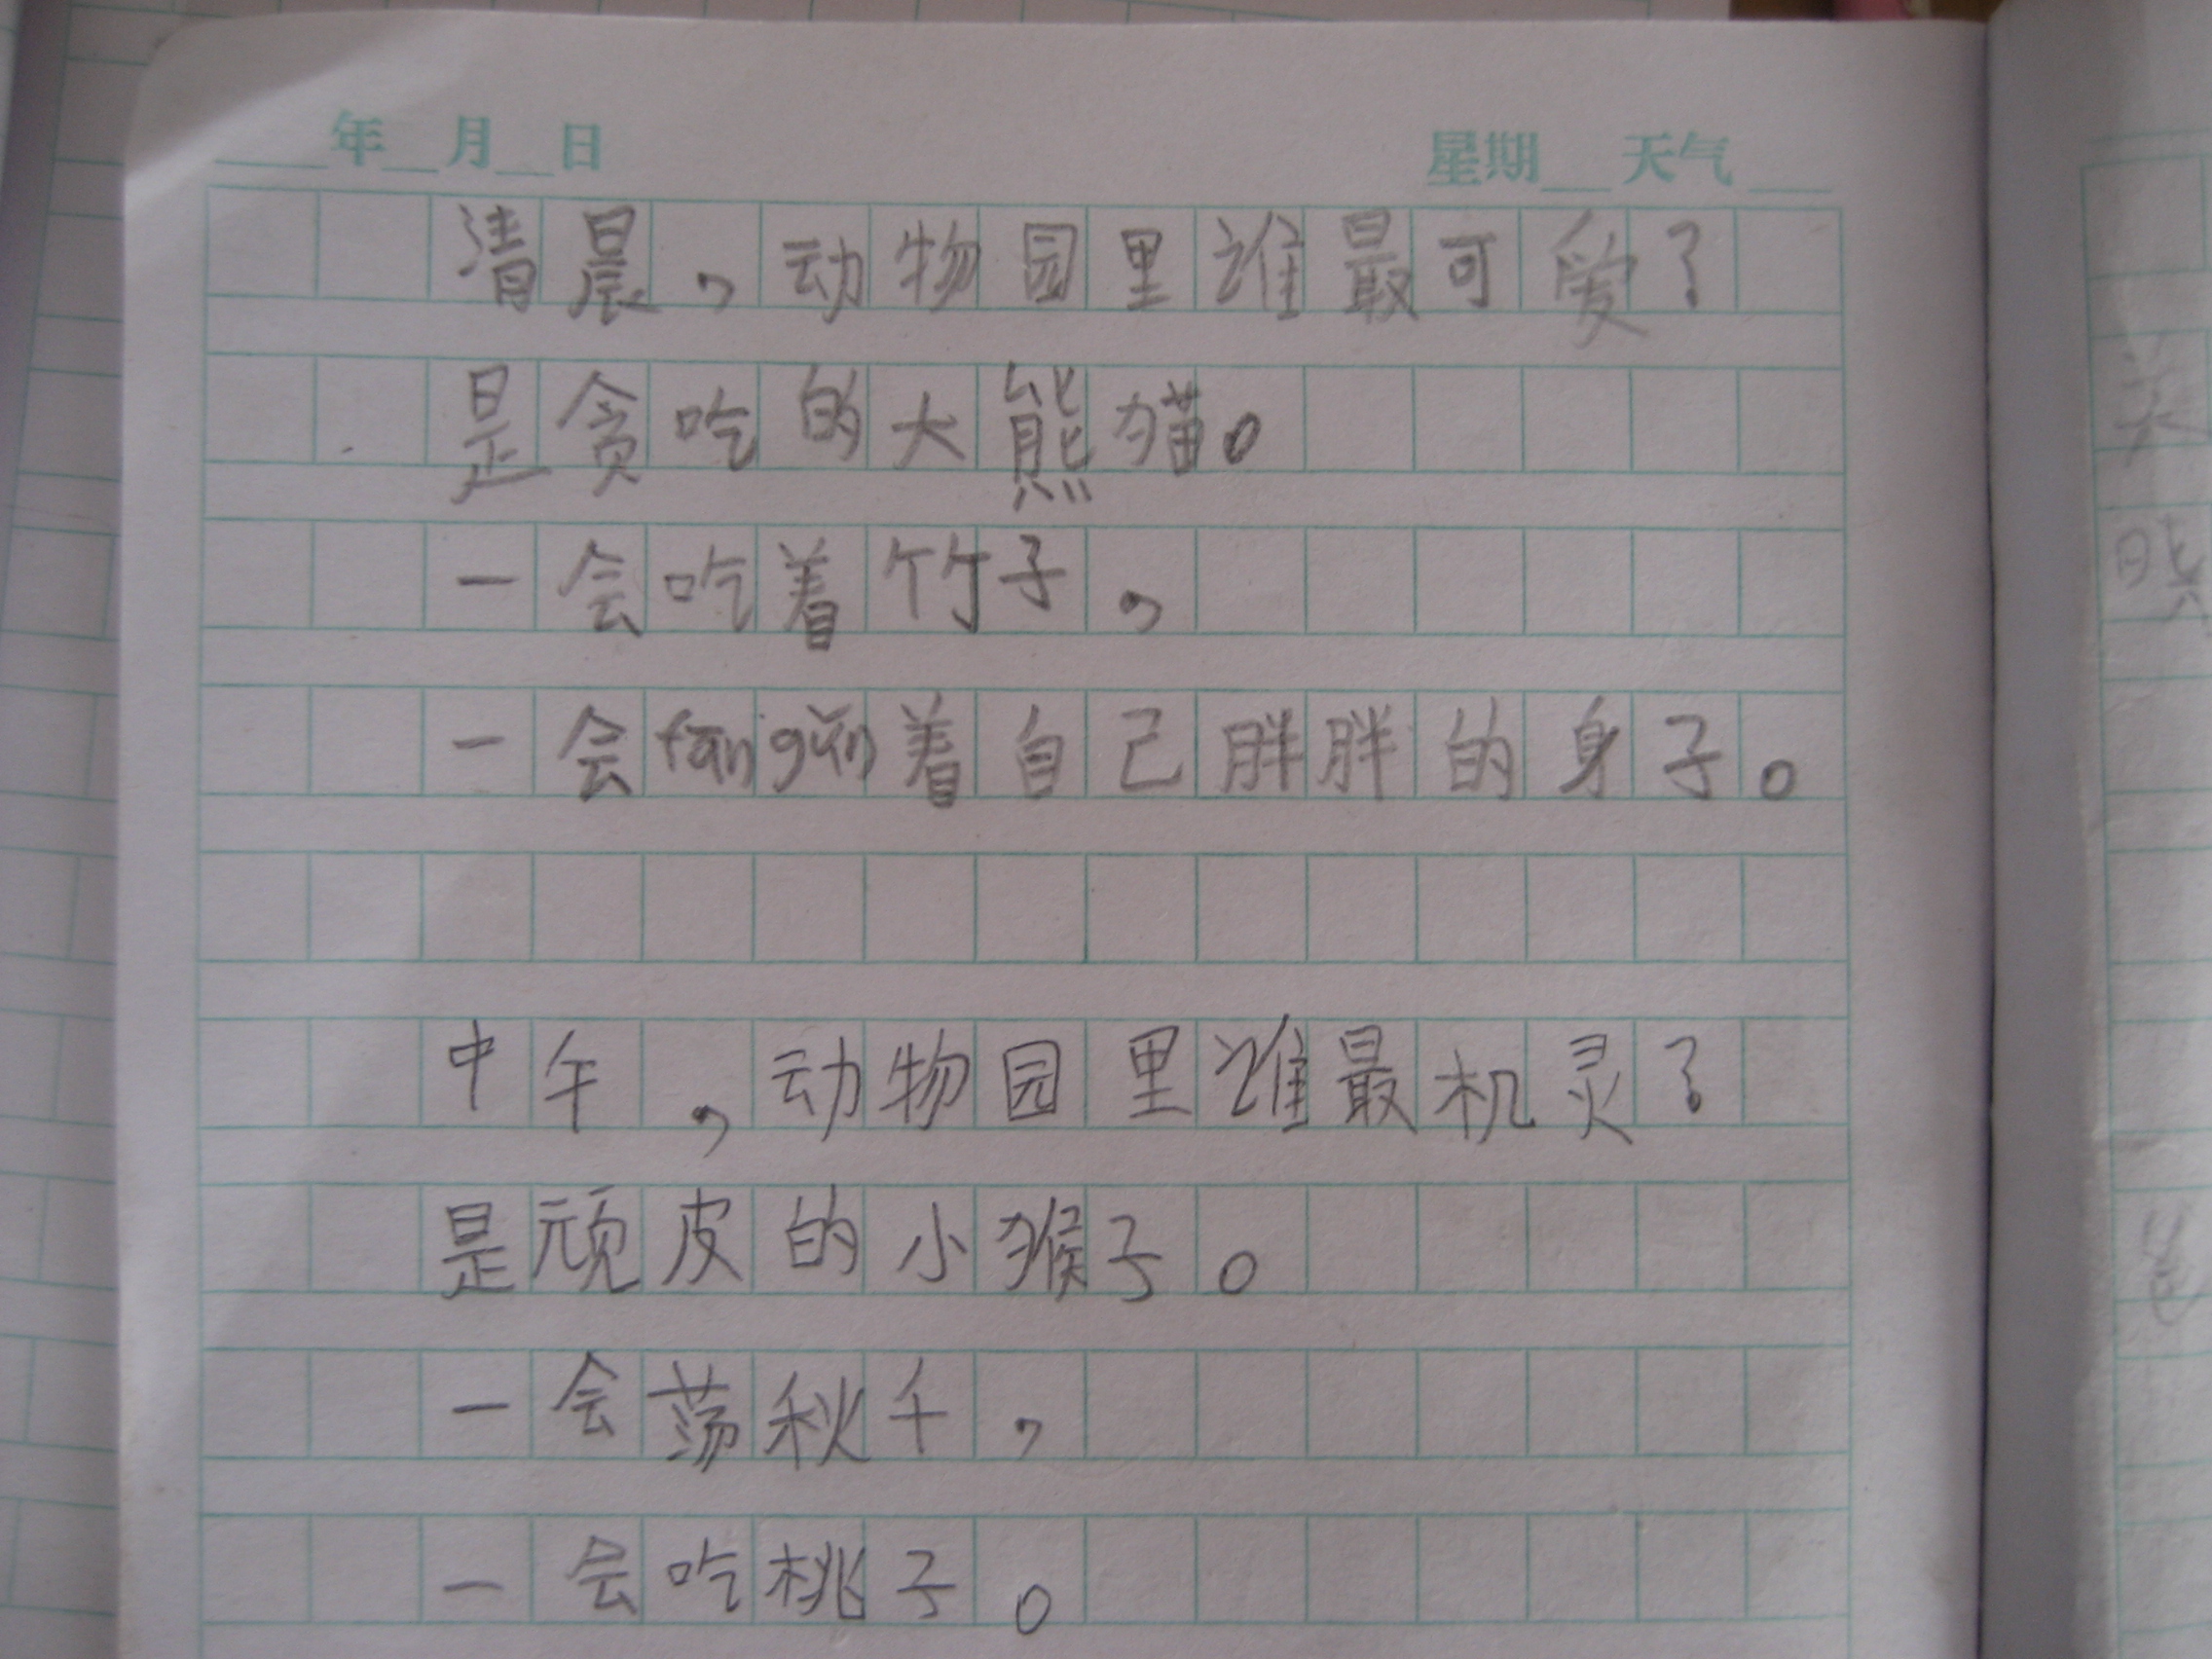 ____年__月__日 星期__天气___
清晨，动物园里谁最可爱？
是贪吃的大熊猫。
一会吃着竹子，
一会fān gǔn着自己胖胖的身子。
中午，动物园里谁最机灵？
是顽皮的小猴子。
一会荡秋千，
一会吃桃子。